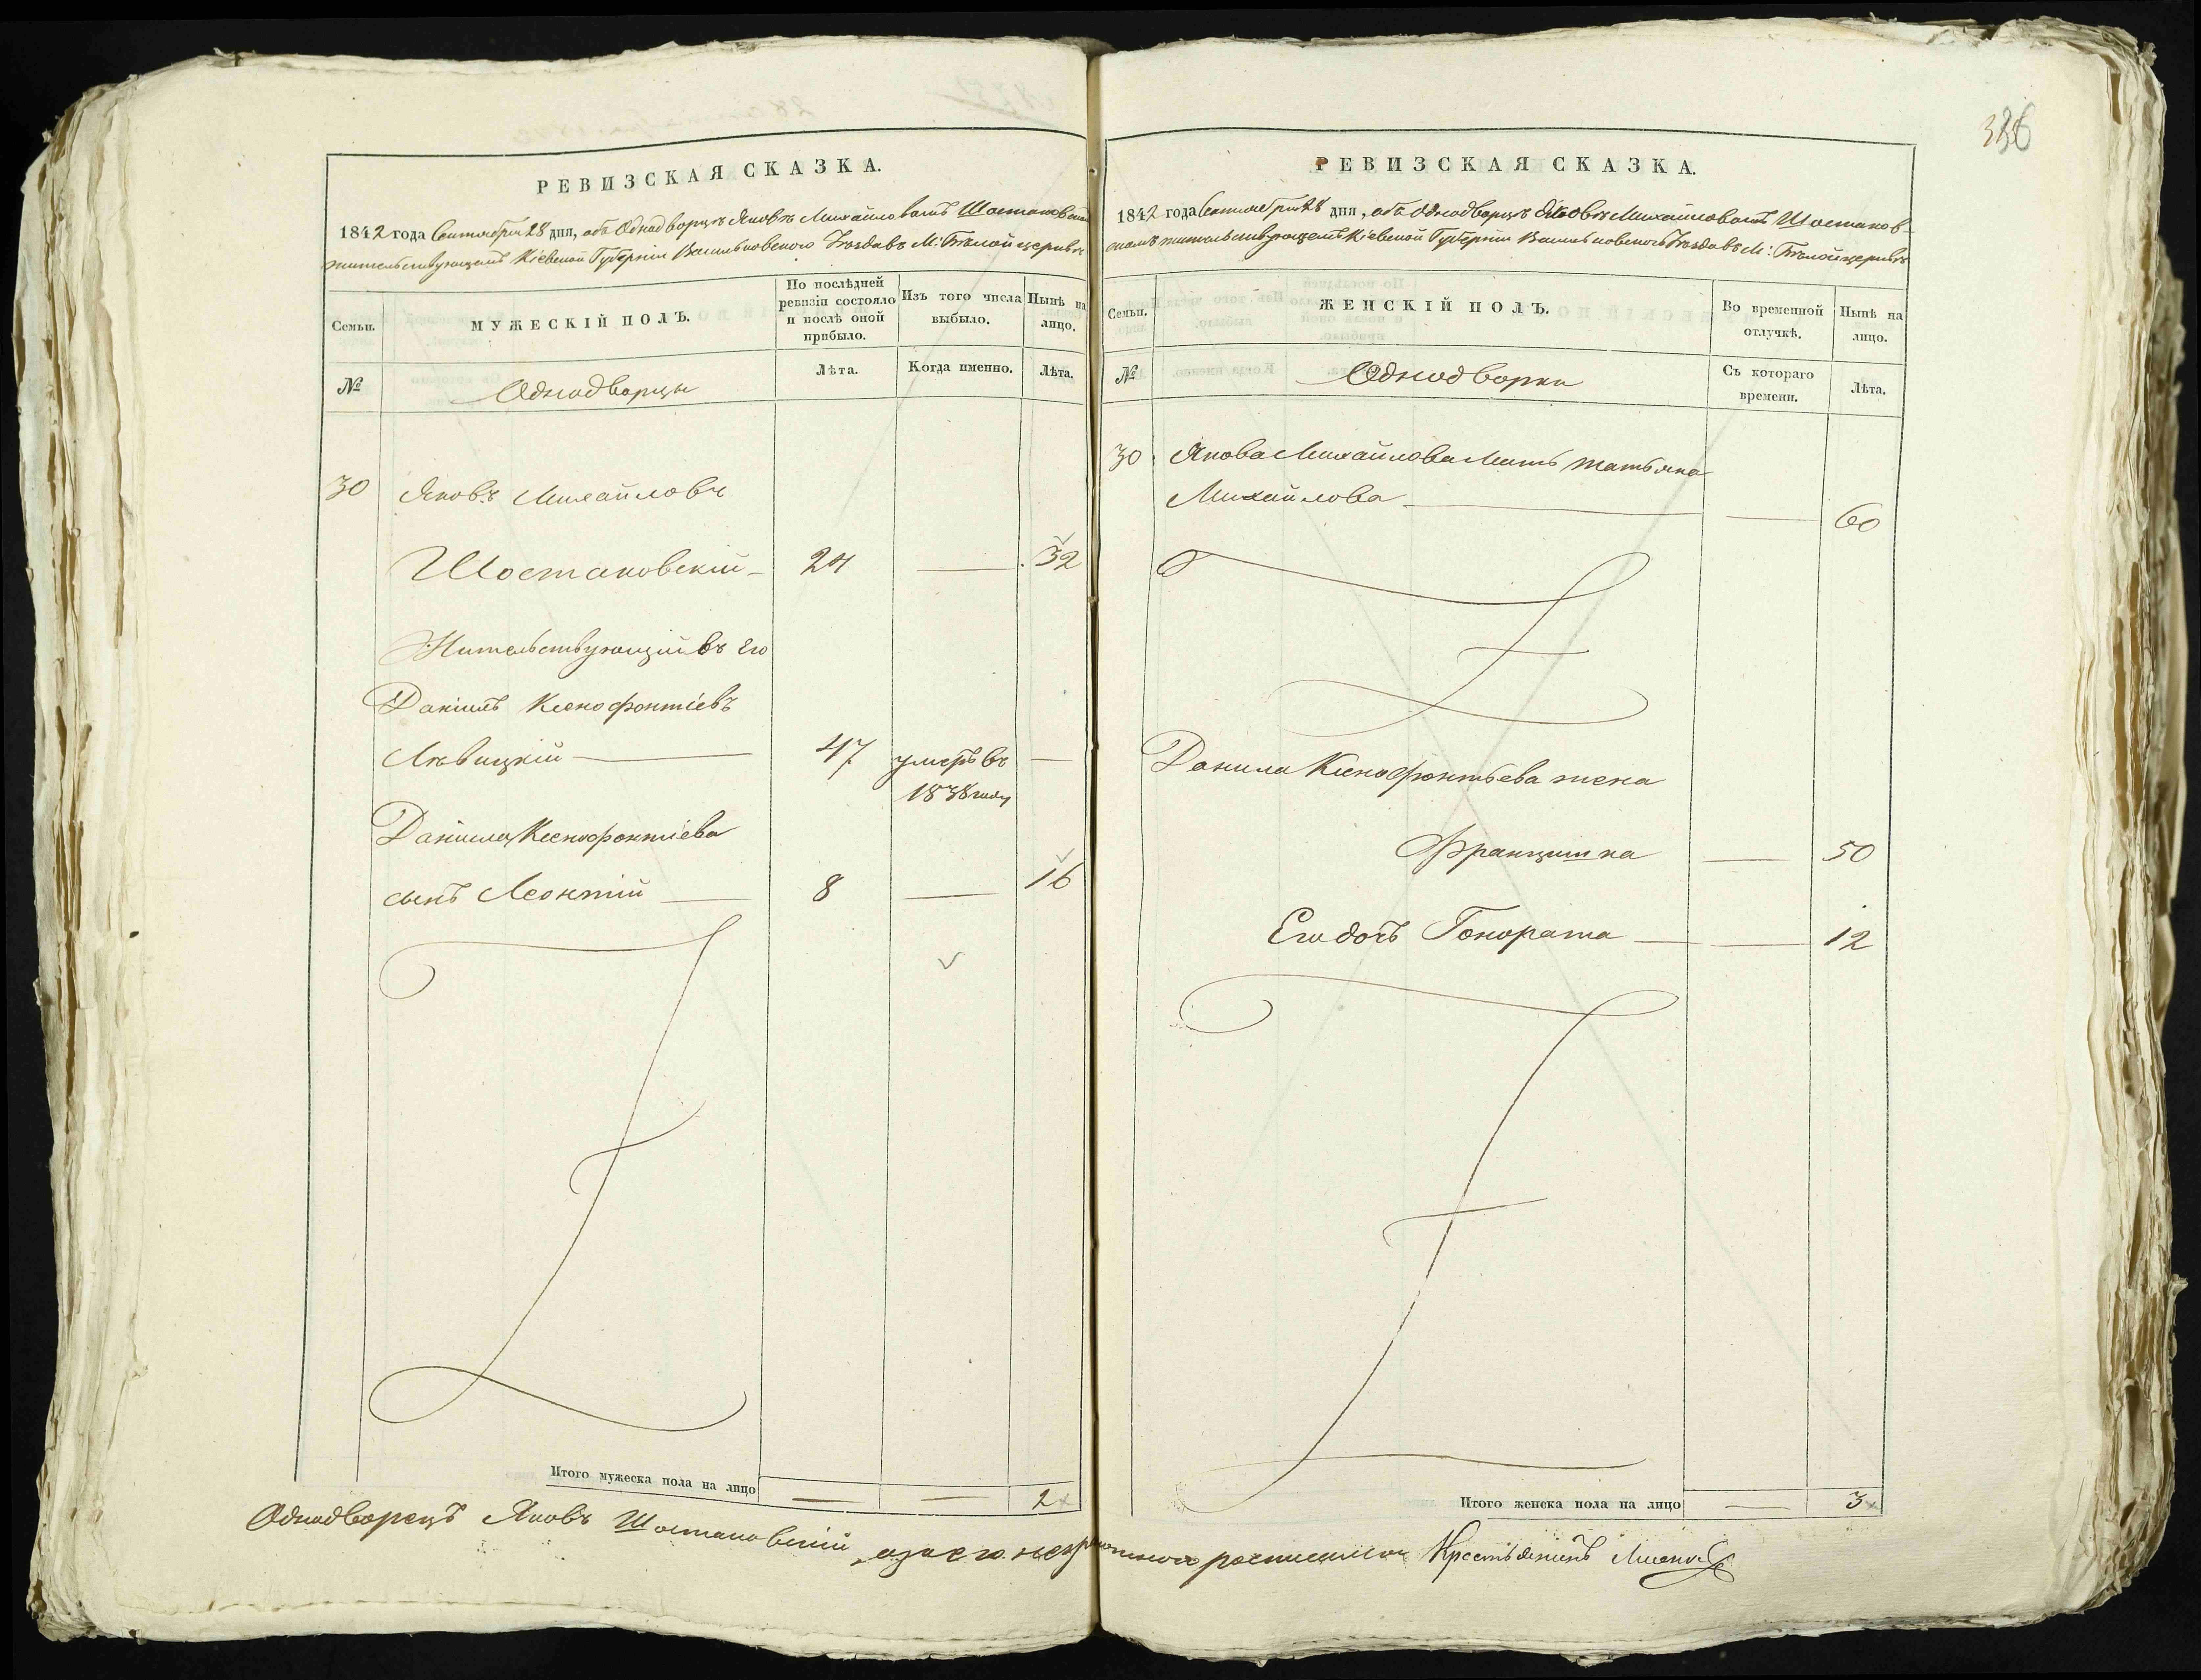 РЕВИЗСКАЯ СКАЗКА.
1842 года Сентября 28 дня, объ Однодворцѣ Яковѣ Михайловомъ Шостаковскомъ
жительствующемъ Кіевской Губерніи Васильковского Уѣзда въ М: Бѣлой церквѣ
Семьи.
МУЖЕСКІЙ ПОЛЪ.
По послѣдней ревизіи состояло и послѣ оной прибыло.
Изъ того числа выбыло.
Нынѣ на лицо.
№
Однодворцы
Лѣта.
Когда именно.
Лѣта.
30 Яковъ Михайловъ
Шостаковскій 24 — 32
Жительствующій въ Его
Даніилъ Ксенофонтіевъ
Лѣвицкій — 47 умеръ въ —
1838 году
Даніила Ксенофонтіева
сынъ Леонтій — 8 — 16
Итого мужеска пола на лицо — — 2
386
РЕВИЗСКАЯ СКАЗКА.
1842 года Сентября 28 дня, объ Однодворцѣ Яковѣ Михайловомъ Шостаков-
скомъ жительствующемъ Кіевской Губерніи Васильковского Уѣзда въ М: Бѣлой церквѣ
Семьи.
ЖЕНСКІЙ ПОЛЪ.
Во временной отлучкѣ.
Нынѣ на лицо.
№
Однодворки
Съ котораго времени.
Лѣта.
30 Якова Михайлова Мать Татьяна
Михайлова — — 60
Данила Ксенофонтьева жена
Францишка — 50
Его дочь Гонората — — 12
Итого женска пола на лицо — 3
Однодворецъ Яковъ Шостаковскій, а за его неграмотного росписался Крестьянинъ